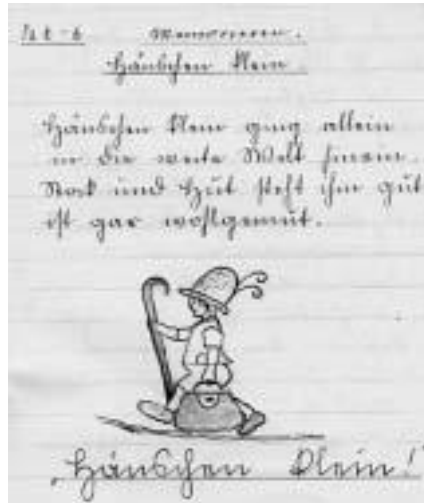 Memorieren.
Hänschen klein.
Hänschen klein ging allein
in die weite Welt hinein.
Stock und Hut steht ihm gut
ist gar wohlgemut.
Hänschen klein!